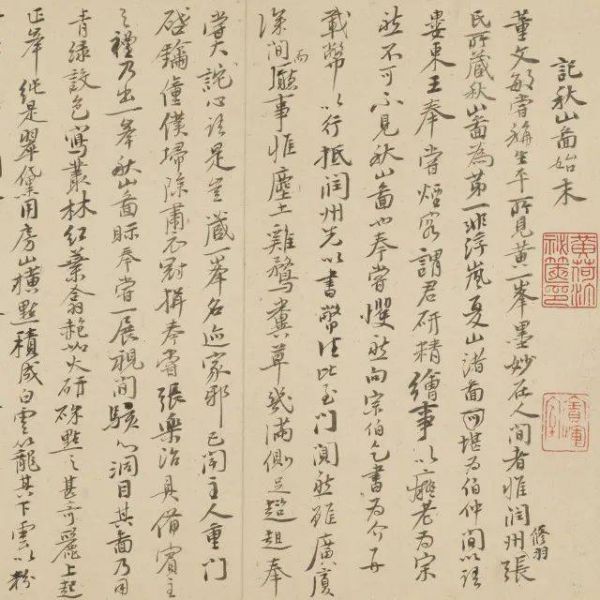 記秋山圖始末
董文敏嘗稱生平所見黃一峯墨妙在人間者惟潤州張
修羽
氏所藏秋山圖為第一非浮嵐夏山諸圖可堪為伯仲間以語
婁東王奉嘗煙客謂君研精繪事以癡老為宗
然不可不見秋山圖也奉嘗戄然向宗伯乞書為介并
載幣以行抵潤州先以書幣往比至門閴然雖廣廈
深間而廳事惟塵土雞鶩糞草幾滿側足趑趄奉
嘗大詫心語是豈藏一峯名迹家邪已聞主人重門
啓鑰僮僕掃除肅衣冠揖奉嘗張樂治具備賓主
之禮乃出一峯秋山圖眎奉嘗一展視間駭心洞目其圖乃用
青綠設色寫叢林紅葉翕赧如火研硃點之甚奇麗上起
正峯純是翠黛用房山橫點積成白雲籠其下雲以粉